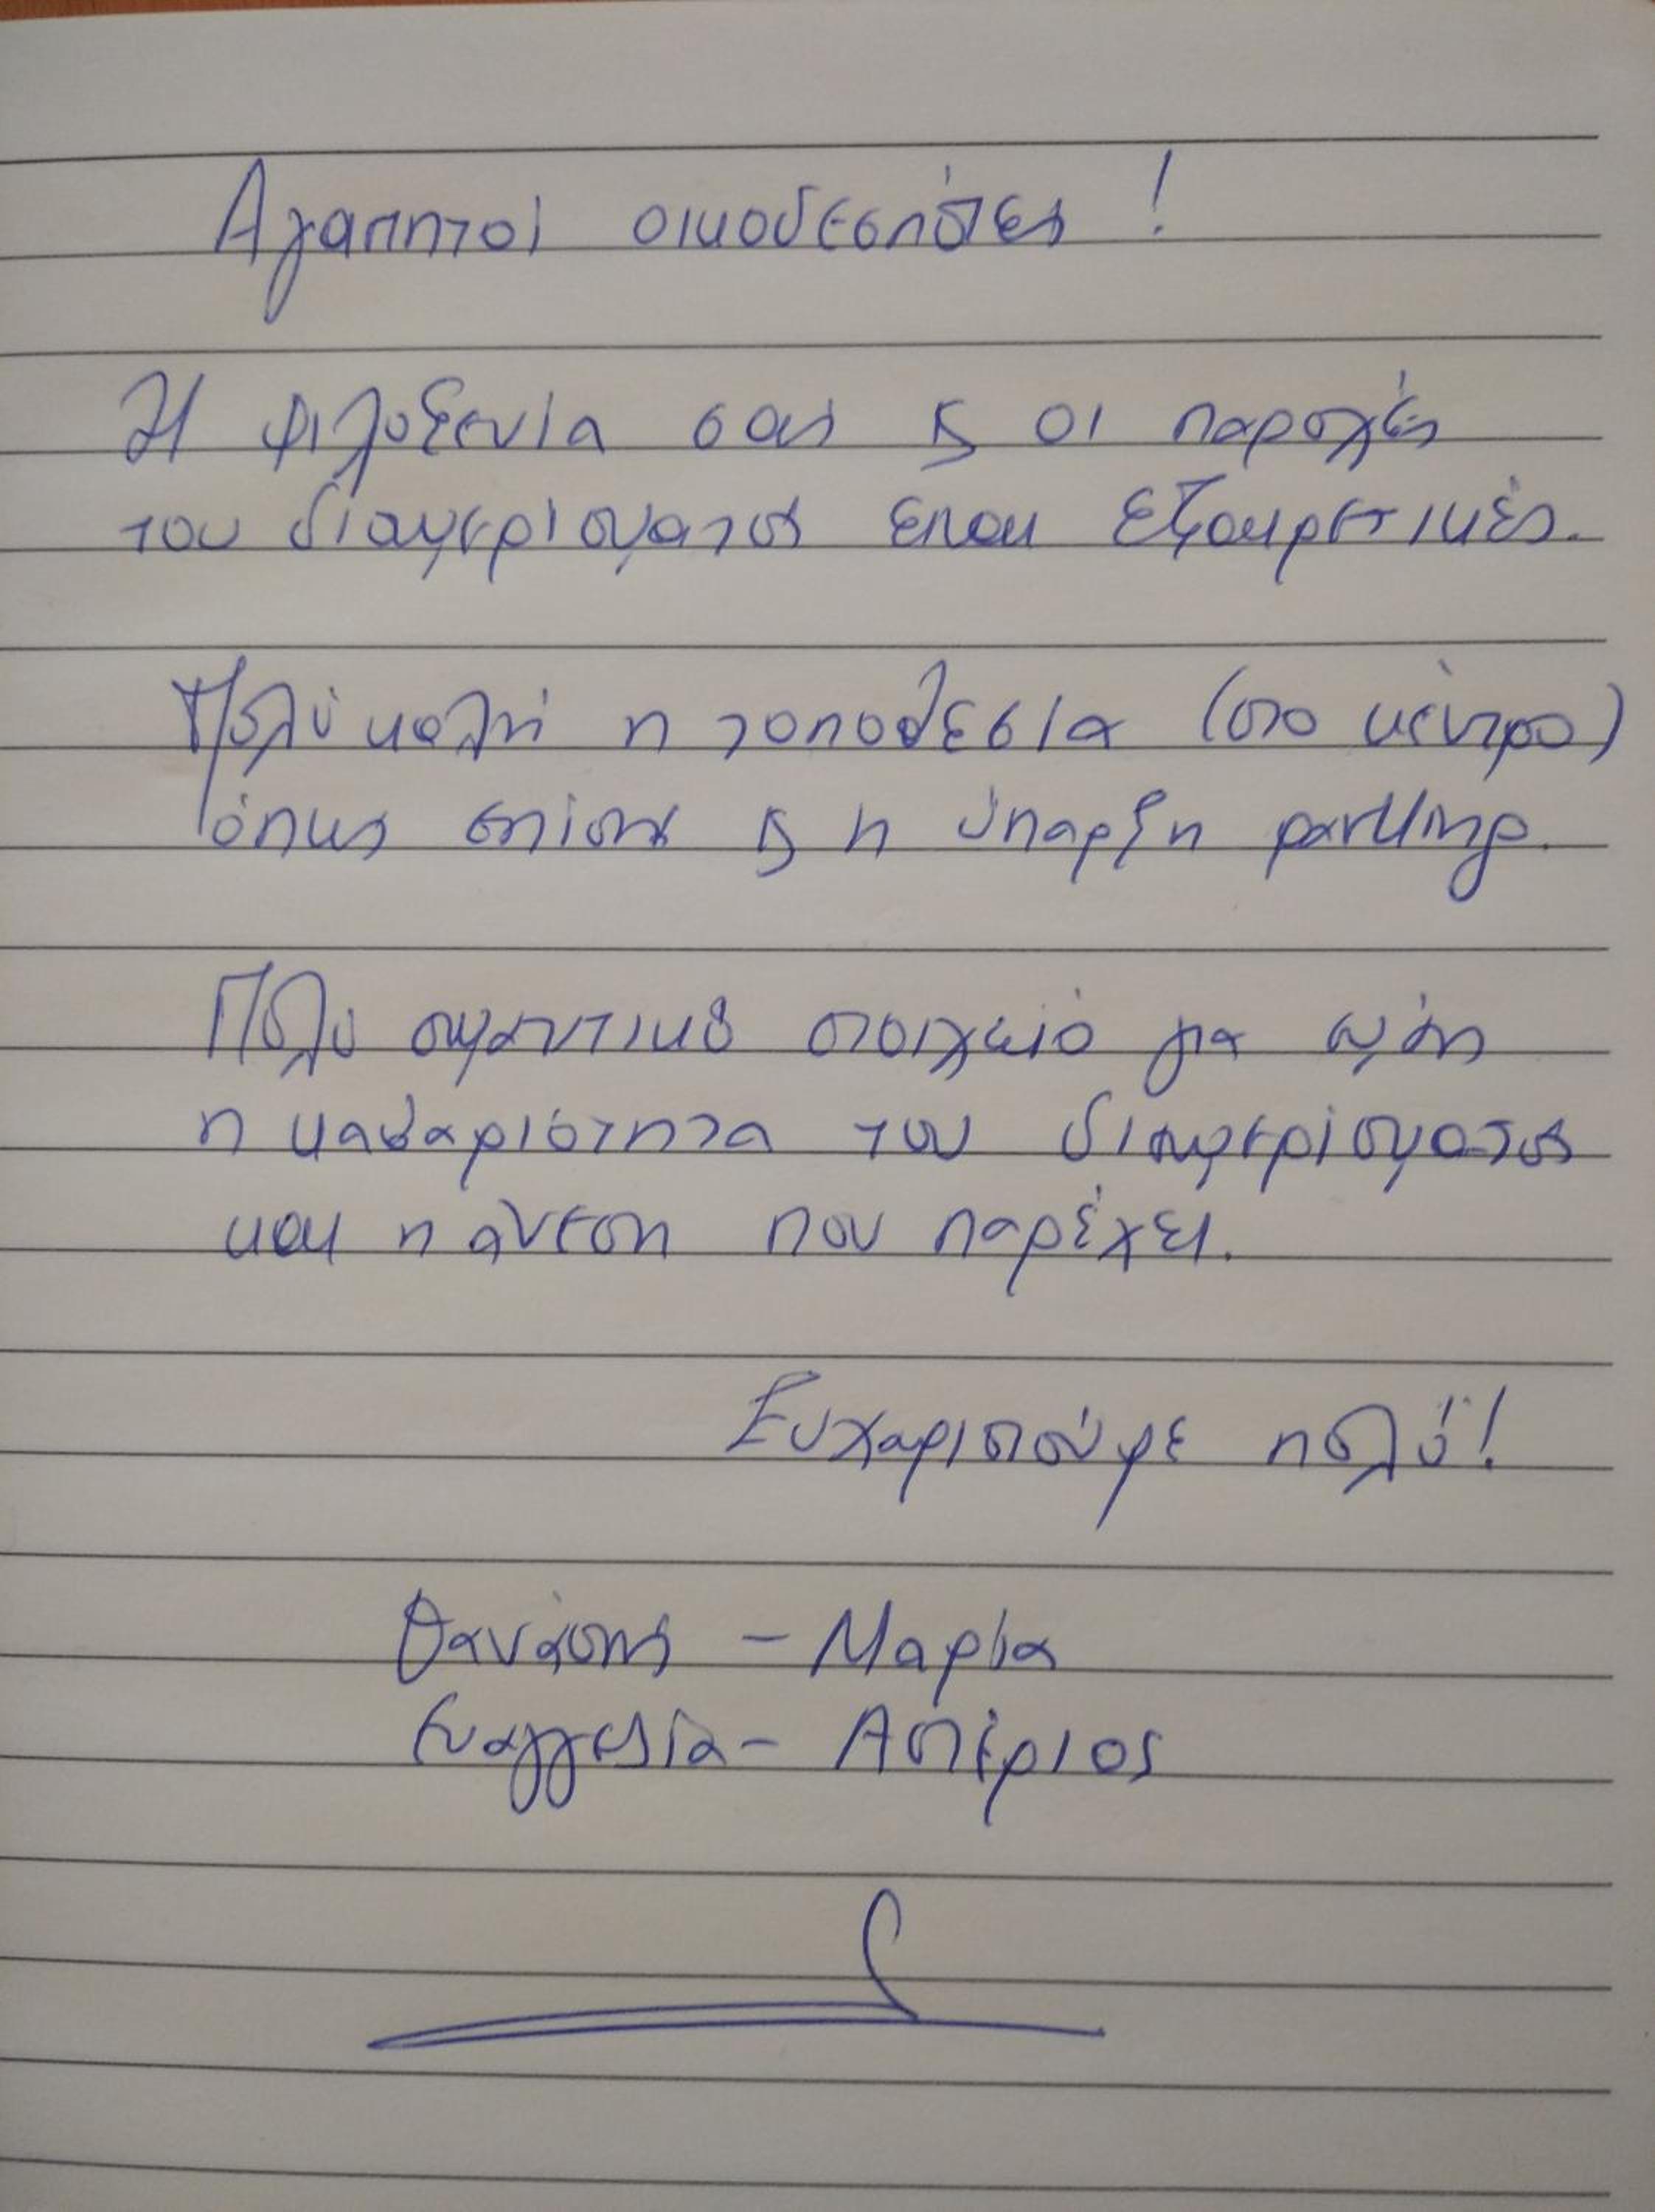 Αγαπητοί οικοδεσπότες!
Η φιλοξενία σας ϗ οι παροχές
του διαμερίσματος είναι εξαιρετικές.
Πολύ καλή η τοποθεσία (στο κέντρο)
όπως επίσης ϗ η ύπαρξη parking.
Πολύ σημαντικό στοιχείο για εμάς
η καθαριότητα του διαμερίσματος
και η άνεση που παρέχει.
Ευχαριστούμε πολύ!
Θανάσης - Μαρία
Ευαγγελία - Αστέριος